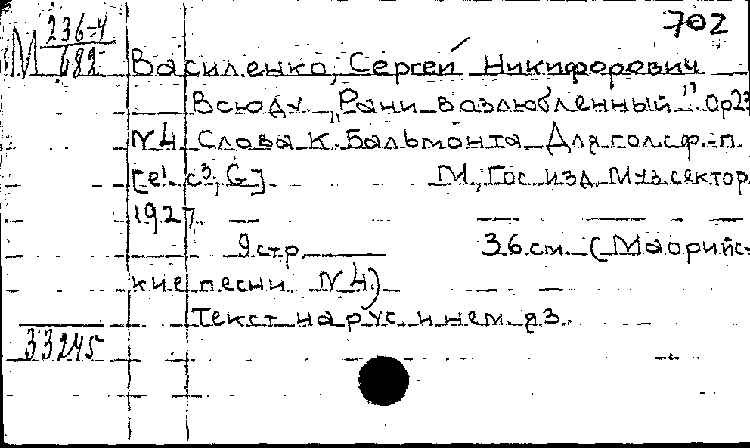 702
М 236-4/682
Василенко, Сергей Никифорович
Всюду „Рани возлюбленный". Ор 23
N4 Слова К. Бальмонта Для гол. с ф.-п.
[e¹ c³, G] М., Гос изд. Муз сектор
1927
9 стр 36 см (Маорийс-
кие песни N4)
Текст на рус. и нем. яз.
33245